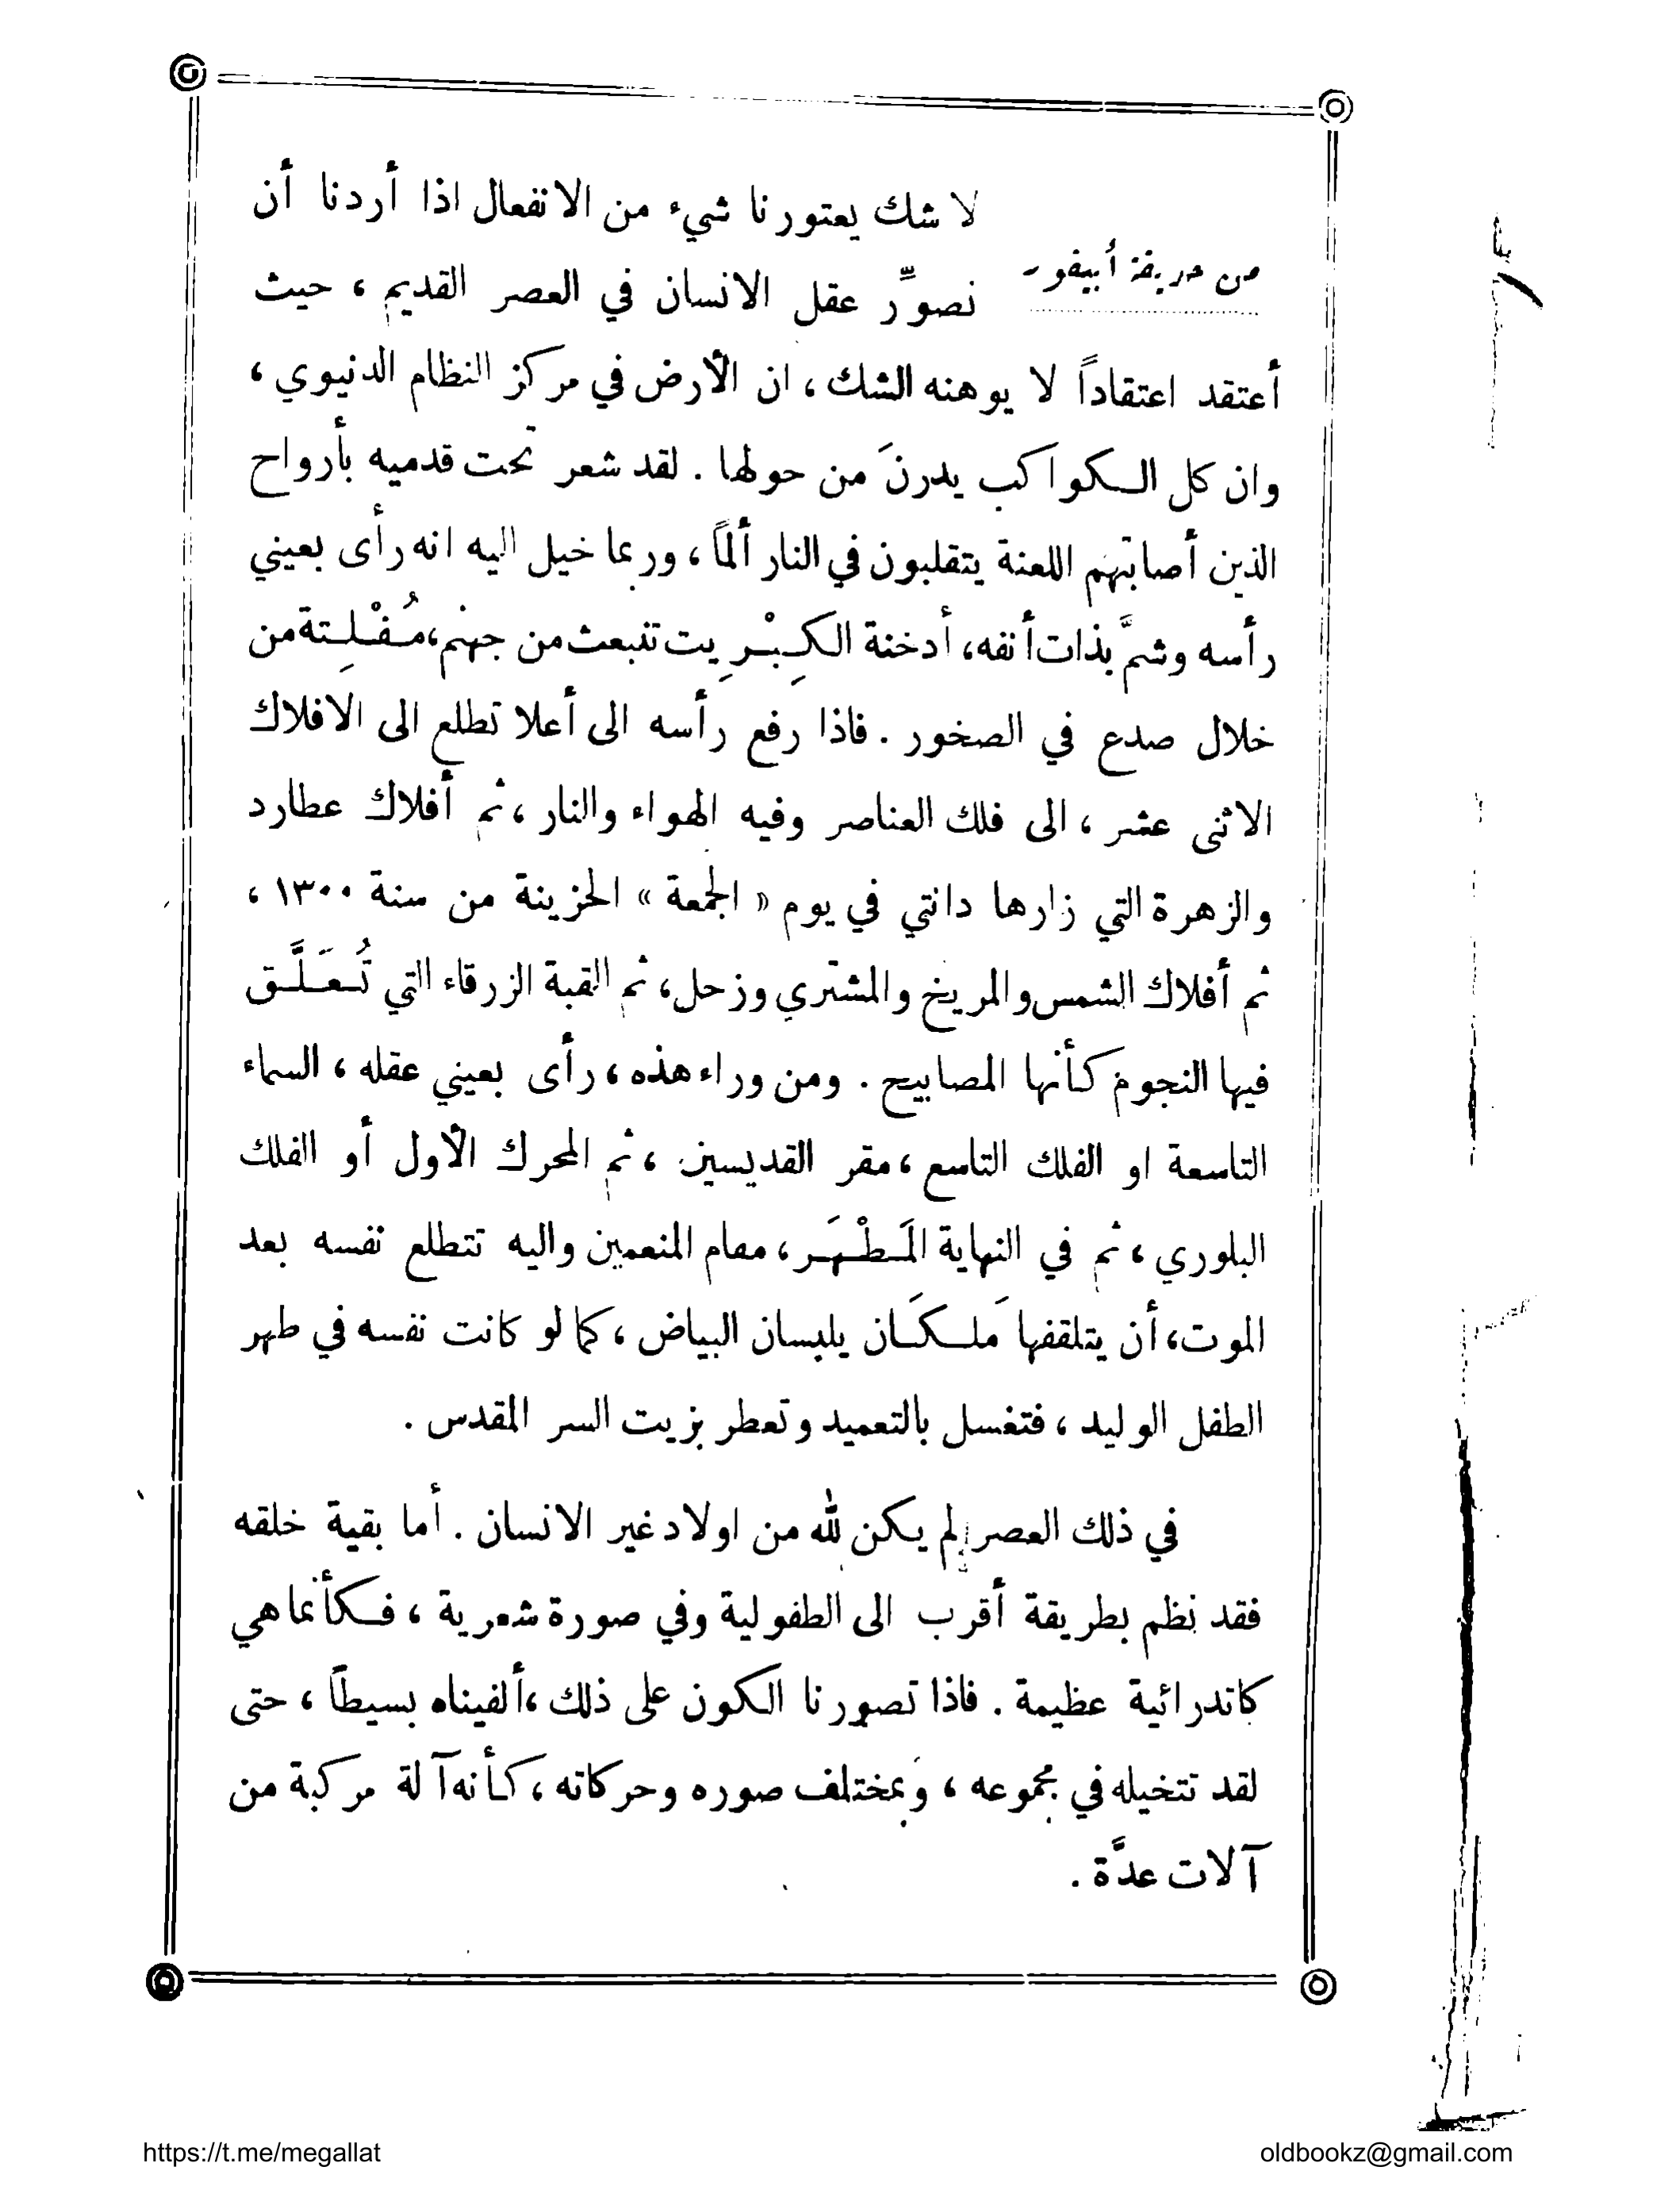 لا شك يعتورنا شيء من الانفعال اذا أردنا أن
من حديقة أبيقور
نصوِّر عقل الانسان في العصر القديم ، حيث
أعتقد اعتقاداً لا يوهنه الشك ، ان الأرض في مركز النظام الدنيوي ،
وان كل الكواكب يدرنَ من حولها . لقد شعر تحت قدميه بأرواح
الذين أصابتهم اللعنة يتقلبون في النار ألماً ، وربما خيل اليه انه رأى بعيني
رأسه وشمَّ بذات أنفه ، أدخنة الكِبْرِيت تنبعث من جهنم ، مُفْلِتة من
خلال صدع في الصخور . فاذا رفع رأسه الى أعلا تطلع الى الافلاك
الاثنى عشر ، الى فلك العناصر وفيه الهواء والنار ، ثم أفلاك عطارد
والزهرة التي زارها دانتي في يوم « الجمعة » الحزينة من سنة ١٣٠٠ ،
ثم أفلاك الشمس والمريخ والمشتري وزحل ، ثم القبة الزرقاء التي تُعَلَّق
فيها النجوم كأنها المصابيح . ومن وراء هذه ، رأى بعيني عقله ، السماء
التاسعة او الفلك التاسع ، مقر القديسين ، ثم المحرك الأول أو الفلك
البلوري ، ثم في النهاية المَطْهَر ، مقام المنعمين واليه تتطلع نفسه بعد
الموت ، أن يتلقفها مَلكَان يلبسان البياض ، كما لو كانت نفسه في طهر
الطفل الوليد ، فتغسل بالتعميد وتعطر بزيت السر المقدس .
في ذلك العصر لم يكن لله من اولاد غير الانسان . أما بقية خلقه
فقد نظم بطريقة أقرب الى الطفولية وفي صورة شعرية ، فكأنما هي
كاتدرائية عظيمة . فاذا تصورنا الكون على ذلك ، ألفيناه بسيطاً ، حتى
لقد تتخيله في مجموعه ، وبمختلف صوره وحركاته ، كأنه آلة مركبة من
آلات عدَّة .
https://t.me/megallat
oldbookz@gmail.com